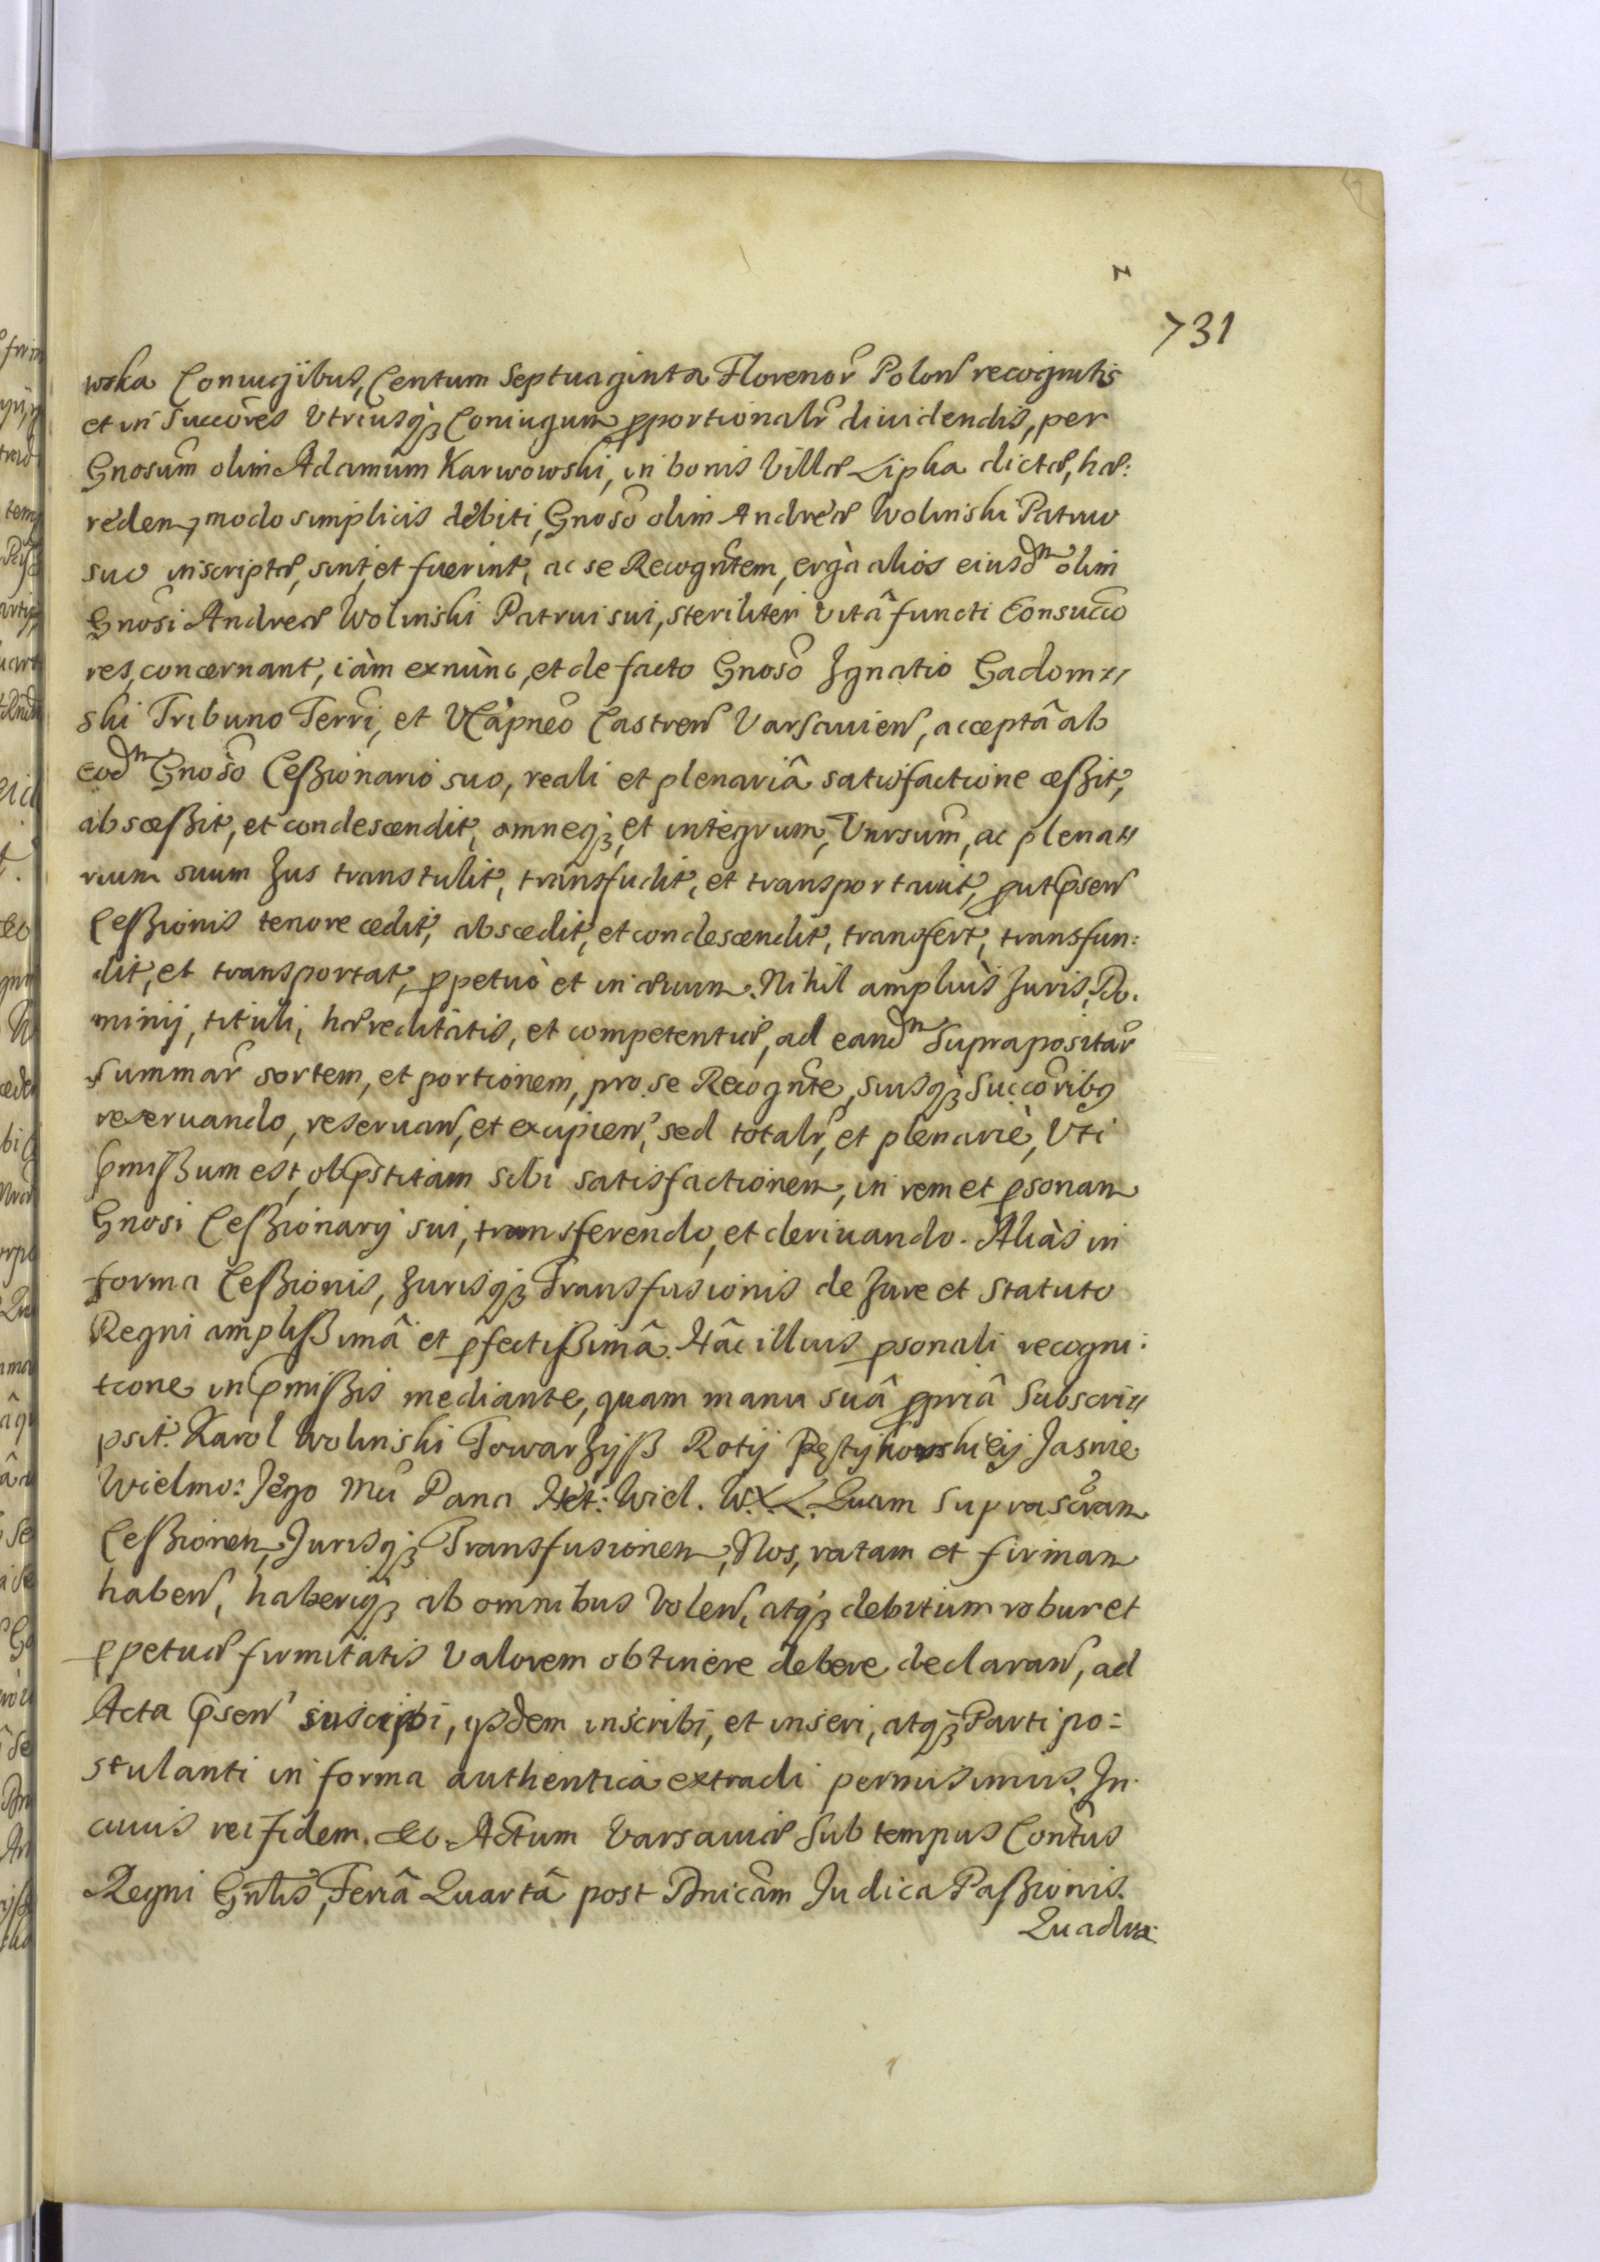 731
wska Coniugibus, Centum Septuaginta Florenor̃ Polon̄ recognitis
et in Succōres Vtriusq́ꝫ Coniugum ꝓportionalr̃ diuidendis, per
Gnosum̄ olim Adamum Karwowski, in bonis Villæ Lipka dictæ, hæ:
redem, modo simplicis debiti, Gnosō olim Andreæ Wolinski Patruo
suo inscriptæ, sint, et fuerint, ac se Recogn̄tem, ergà alios eiusdm̄ olim
Gnosi Andreæ Wolinski Patrui sui, steriliter Vitâ functi Consucco
res, concernant, iàm exnùnc, et de facto Gnosō Ignatio Gadom-
ski Tribuno Terrī, et VCapneō Castren̄ Varsauien̄, acceptâ ab
eodm̄ Gnosō Ceßionario suo, reali et plenariâ satisfactione ceßit,
absceßit, et condescendit, omneq́ꝫ, et integrum, Vnrsum̄, ac plena-
rium suum Jus transtulit, transfudit, et transportauit, ꝓut p̄sen̄
Ceßionis tenore cedit, abscedit, et condescendit, transfert, transfun:
dit, et transportat, ꝑpetuò et in æuum. Nihil ampliùs Juris, Do.
minij, tituli, hæreditatis, et competentiæ, ad eandm̄ Suprapositar̃
Summar̃ sortem, et portionem, pro se Recogn̄te, suisq́ꝫ Succōribꝰ
reseruando, reseruan̄, et excipien̄, sed totalr̃, et plenariè, Vti
p̄mißum est, ob p̄stitam sibi satisfactionem, in rem et ꝑsonam
Gnosi Ceßionarij sui, transferendo, et deriuando. Aliàs in
forma Ceßionis, Jurisq́ꝫ Transfusionis de Jure et Statuto
Regni amplißimâ et ꝑfectißimâ. Hâc illius ꝑsonali recogni:
tione in p̄mißis mediante, quam manu suâ ꝓpriâ Subscri-
psit. Karol Wolinski Towarzyß Roty Jasnie
Wielmo: Jego Mci Pana Het: Wiel. W.X.L. Quam suprascr̄am
Ceßionem, Jurisq́ꝫ Transfusionem, Nos, ratam et firmam
haben̄, haberiq́ꝫ ab omnibus Volen̄, atq́ꝫ debitum robur et
ꝑpetuæ firmitatis Valorem obtinere debere declaran̄, ad
Acta p̄sen̄ suscipi, ysdem inscribi, et inseri, atq́ꝫ Parti po:
stulanti in forma authentica extradi permisimus. In
cuius rei fidem. &c. Actum Varsauiæ Sub tempus Conn̄tus
Regni Gn̄lis, Feriâ Quartâ post Dnicam̄ Judica Paßionis.
Quadra: